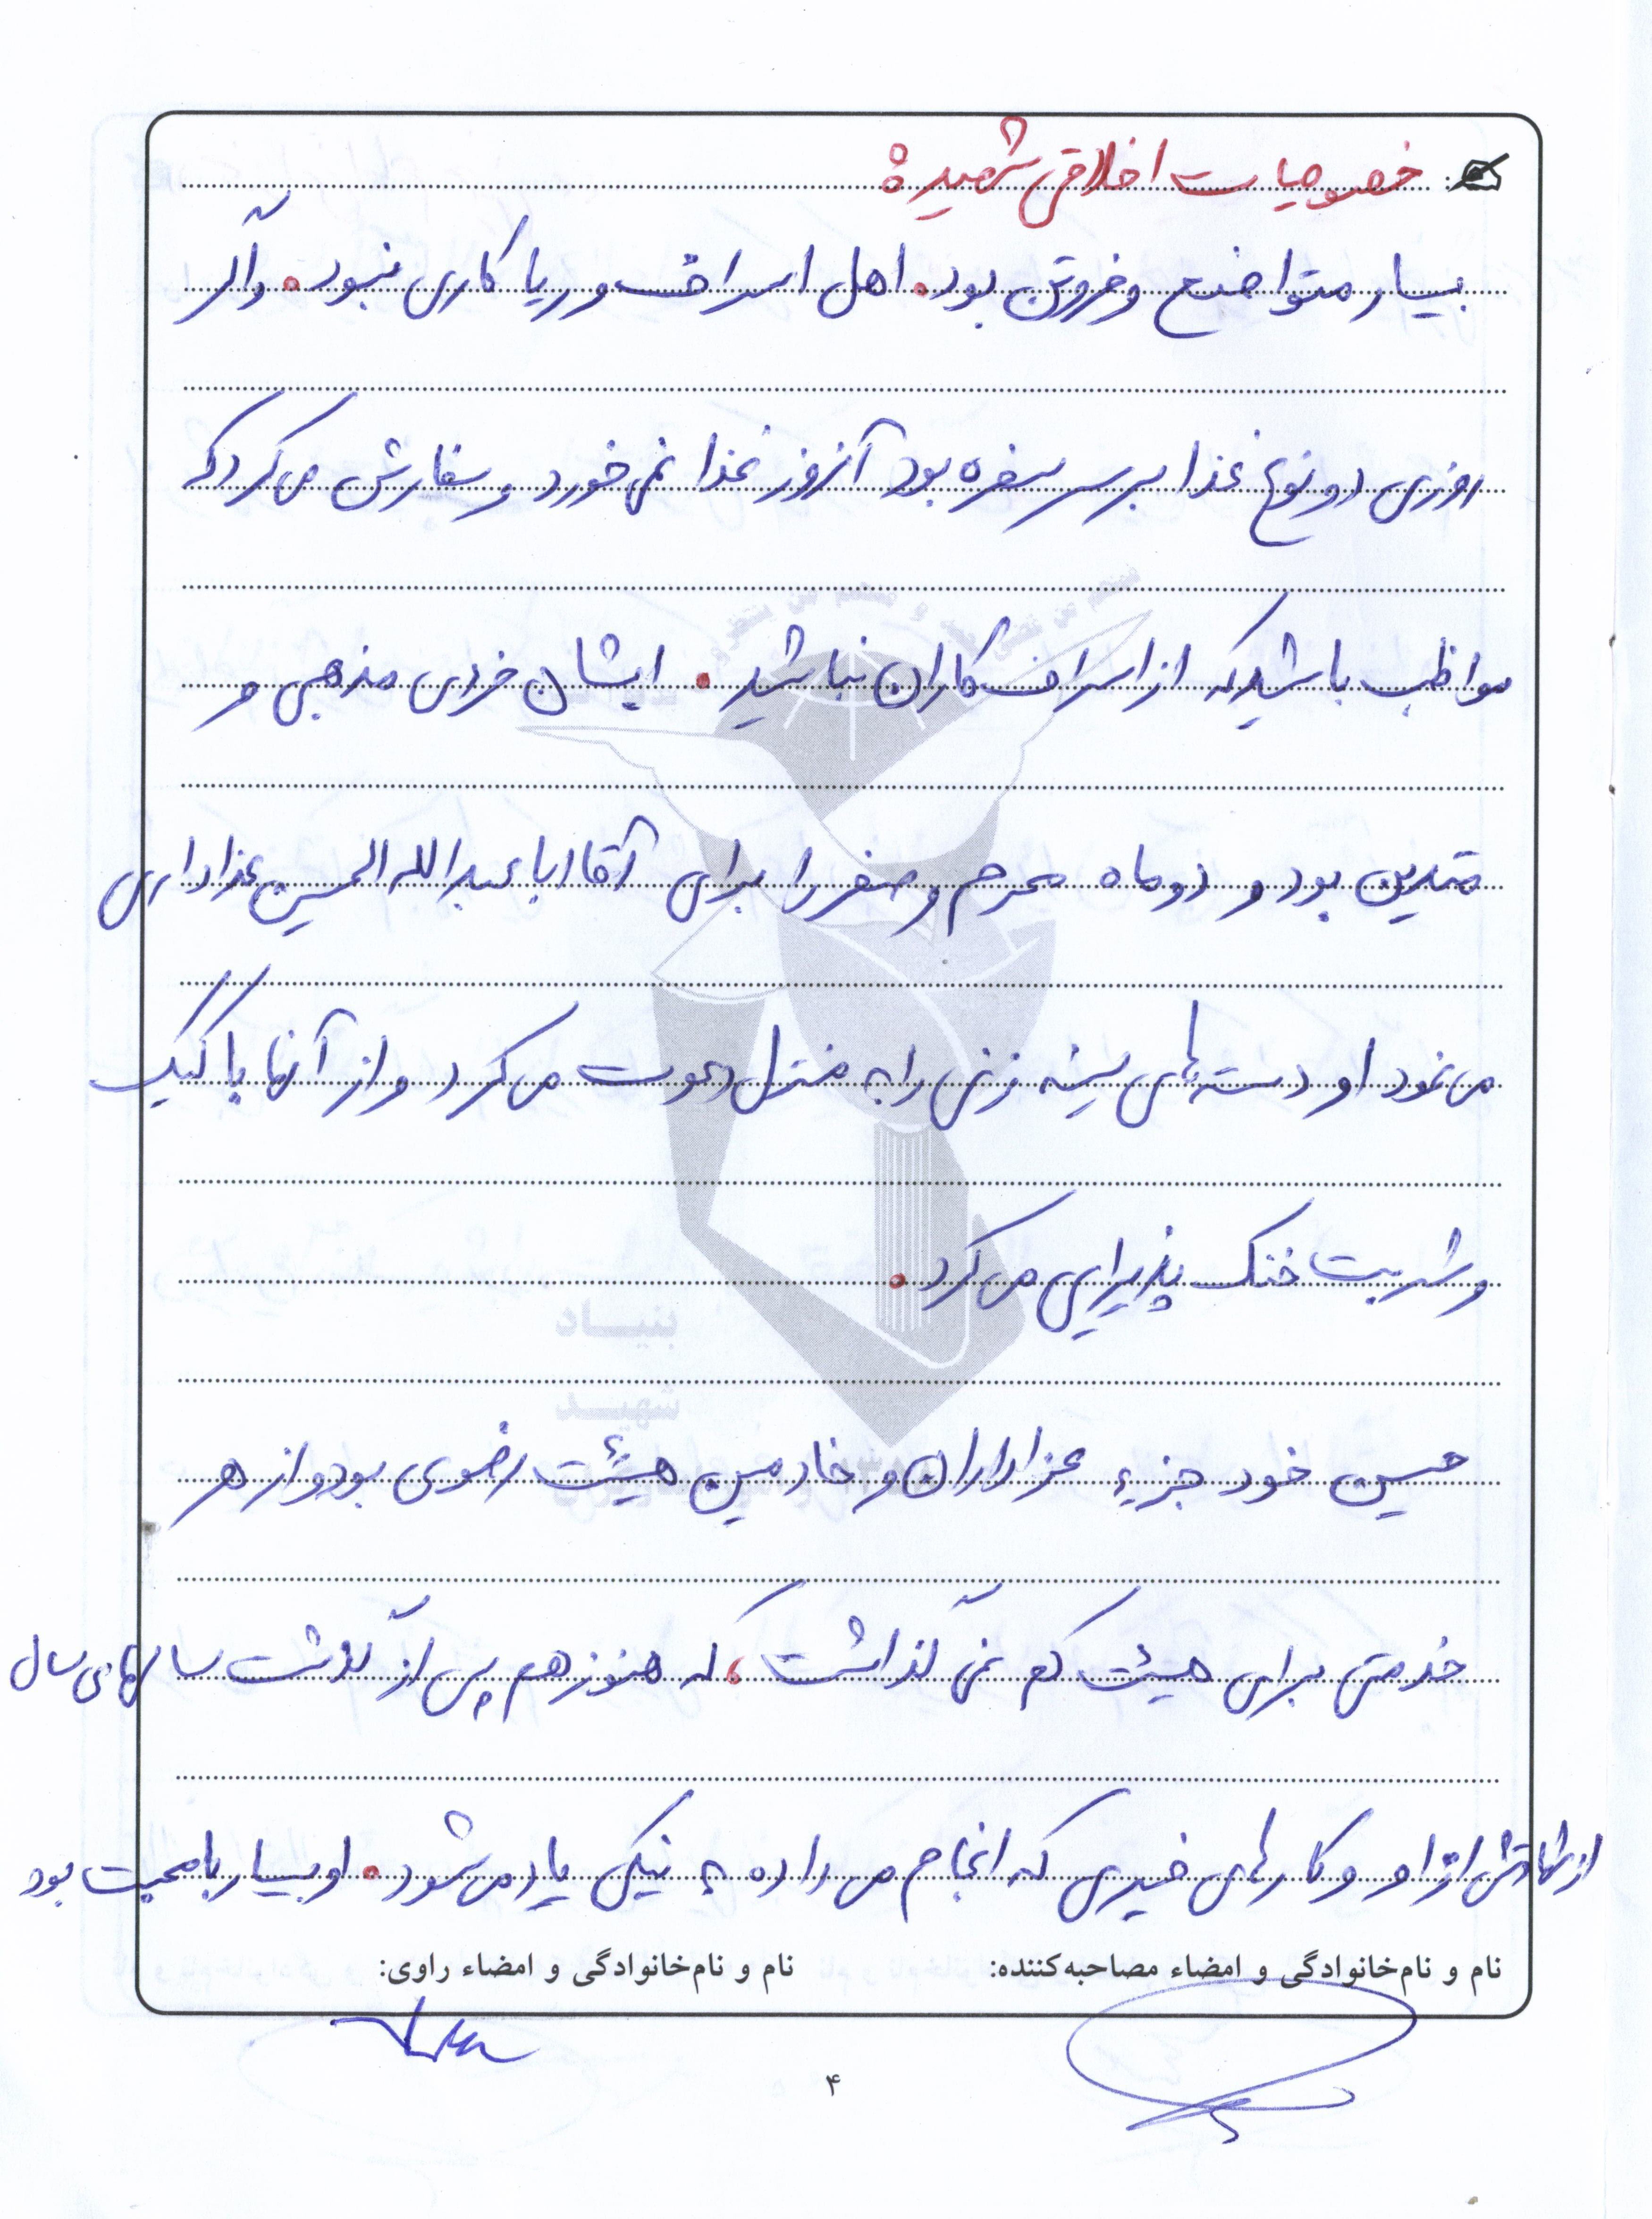 خصوصیات اخلاقی شهید:
بسیار متواضع و فروتن بود. اهل اسراف و ریا کاری نبود. و اگر
روزی دو نوع غذا بر سر سفره بود آنروز غذا نمی خورد و سفارش می کرد که
مواظب باشید که از اسراف کاران نباشید. ایشان فردی مذهبی و
متدین بود و دو ماه محرم و صفر را برای آقا ابا عبدالله الحسین عذاداری
می نمود او دسته های سینه زنی را به منزل دعوت می کرد و از آنها با کیک
و شربت خنک پذیرایی می کرد.
بنیاد
شهید
حسین خود جزء عزاداران و خادمین هیئت رضوی بود و از هر
خدمتی برای هیئت کم نمی گذاشت، که هنوز هم پس از گذشت سالهای سال
از شهادتش از او و کارهای خیری که انجام می داده به نیکی یاد می شود. او بسیار با محبت بود
نام و نام‌خانوادگی و امضاء مصاحبه‌کننده: نام و نام‌خانوادگی و امضاء راوی:
۴